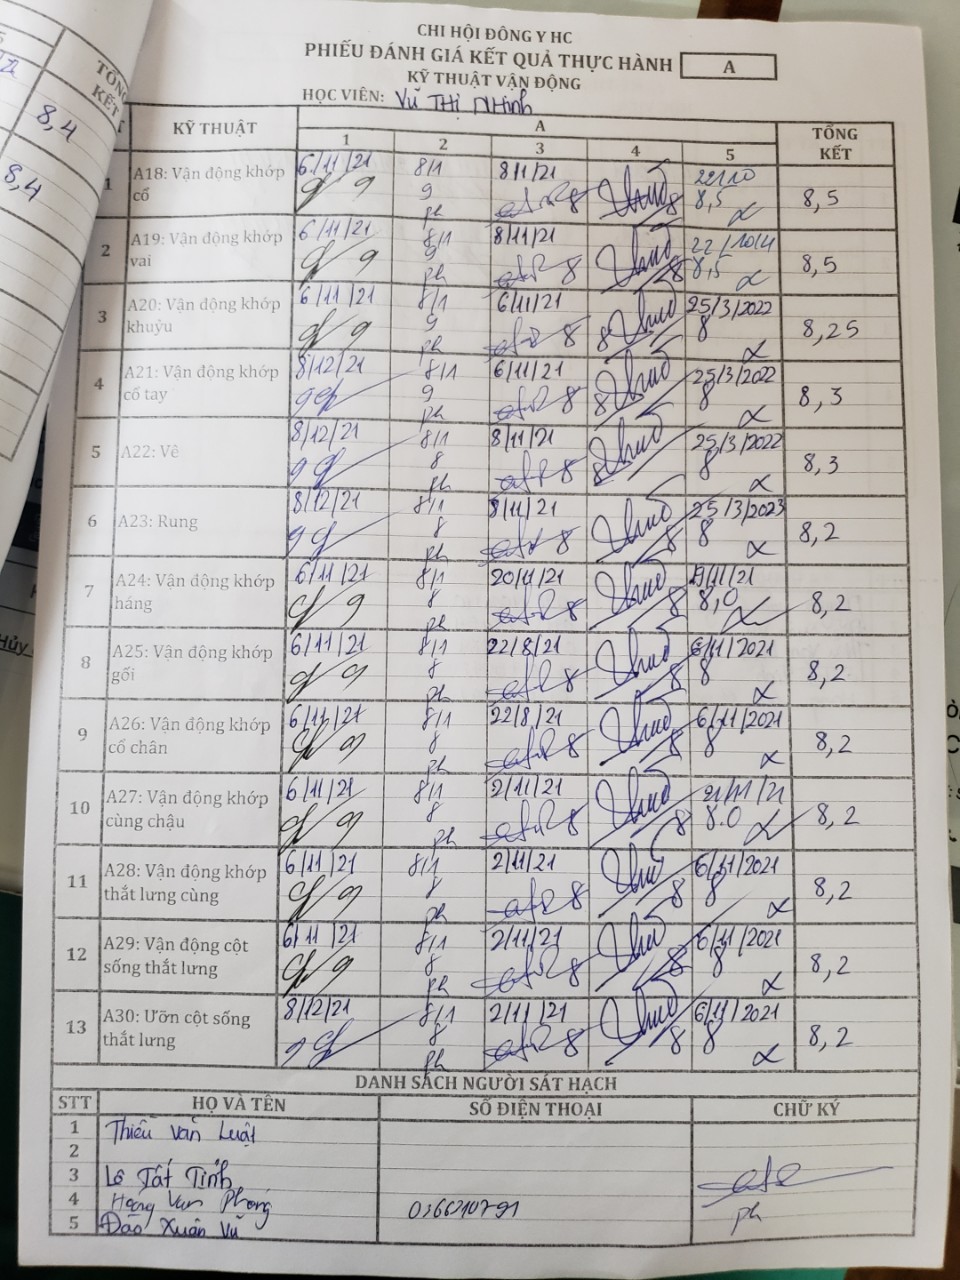 TỔNG
KẾT
8,4
8,4
CHI HỘI ĐÔNG Y HC
PHIẾU ĐÁNH GIÁ KẾT QUẢ THỰC HÀNH A
KỸ THUẬT VẬN ĐỘNG
HỌC VIÊN: Vũ Thị Nhinh
KỸ THUẬT A TỔNG KẾT
1 2 3 4 5
1 A18: Vận động khớp cổ 6/11/21 9 8/1 9 ph 8/1/21 8 8 8,5 8,5
2 A19: Vận động khớp vai 6/11/21 9 8/1 9 ph 8/11/21 8 8 8,5 8,5
3 A20: Vận động khớp khuỷu 6/11/21 9 8/1 9 ph 6/11/21 8 8 25/3/2022 8 8,25
4 A21: Vận động khớp cổ tay 8/12/21 9 8/1 9 ph 6/11/21 8 8 25/3/2022 8 8,3
5 A22: Vê 8/12/21 9 8/1 8 ph 8/11/21 8 8 25/3/2022 8 8,3
6 A23: Rung 8/12/21 9 8/1 8 ph 8/11/21 8 8 25/3/2023 8 8,2
7 A24: Vận động khớp háng 6/11/21 9 8/1 8 ph 20/11/21 8 8 8,0 8,2
8 A25: Vận động khớp gối 6/11/21 9 8/1 8 ph 22/8/21 8 8 6/11/2021 8 8,2
9 A26: Vận động khớp cổ chân 6/11/21 9 8/1 8 ph 22/8/21 8 8 6/11/2021 8 8,2
10 A27: Vận động khớp cùng chậu 6/11/21 9 8/1 8 ph 2/11/21 8 8 21/11/21 8.0 8,2
11 A28: Vận động khớp thắt lưng cùng 6/11/21 9 8/1 8 ph 2/11/21 8 8 6/11/2021 8 8,2
12 A29: Vân động cột sống thắt lưng 6/11/21 9 8/1 8 ph 2/11/21 8 8 6/11/2021 8 8,2
13 A30: Ưỡn cột sống thắt lưng 8/12/21 9 8/1 8 ph 2/11/21 8 8 6/11/2021 8 8,2
DANH SÁCH NGƯỜI SÁT HẠCH
STT HỌ VÀ TÊN SỐ ĐIỆN THOẠI CHỮ KÝ
1 Thiều Văn Luật
2
3 Lê Tất Tính
4 Hoàng Văn Phong 0366210791 ph
5 Đào Xuân Vũ